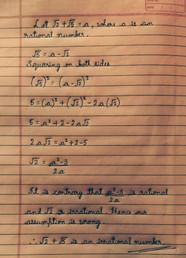 Let √3 + √5 = a, where a is an
rational number.
√5 = a - √3
Squaring on both sides
(√5)² = (a - √3)²
5 = (a)² + (√3)² - 2a(√3)
5 = a² + 3 - 2a√3
2a√3 = a² + 3 - 5
√3 = a² - 2 / 2a
It is contrary that a² - 2 / 2a is rational
and √3 is irrational. Thus our
assumption is wrong.
∴ √3 + √5 is an irrational number